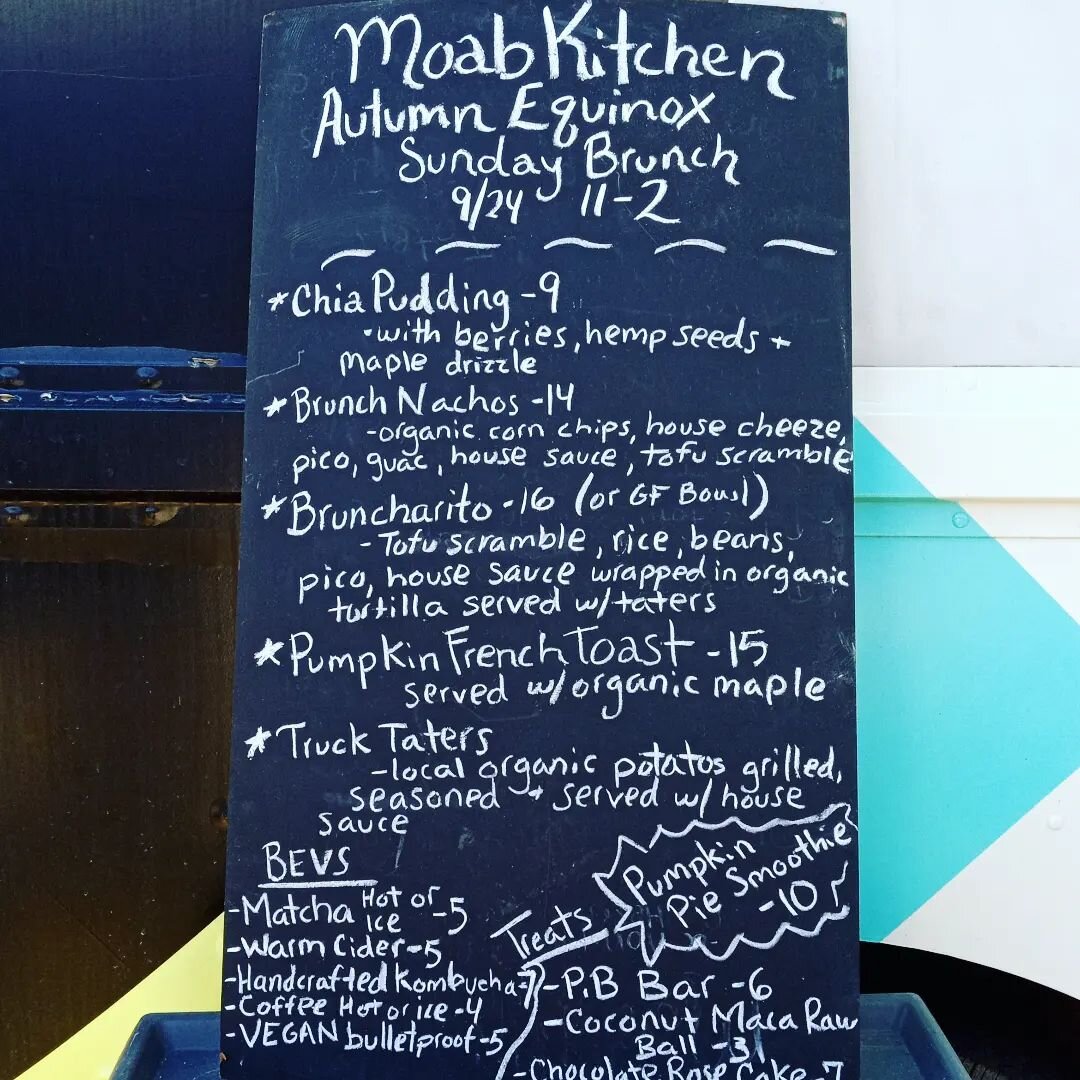 Moab Kitchen
Autumn Equinox
Sunday Brunch
9/24 11-2
*Chia Pudding -9
-with berries, hemp seeds +
maple drizzle
*Brunch Nachos -14
-organic corn chips, house cheeze,
pico, guac, house sauce, tofu scramble
*Bruncharito -16 (or GF Bowl)
-Tofu scramble, rice, beans,
pico, house sauce wrapped in organic
tortilla served w/taters
*Pumpkin French Toast -15
served w/organic maple
*Truck Taters
-local organic potatos grilled,
seasoned + served w/ house
sauce
BEVS
-Matcha Hot or Ice -5
-Warm Cider -5
-Handcrafted Kombucha -7
-Coffee Hot or ice -4
-VEGAN bulletproof -5
Pumpkin
Pie Smoothie
-10
Treats
-P.B Bar -6
-Coconut Maca Raw
Ball -3
-Chocolate Rose Cake -7